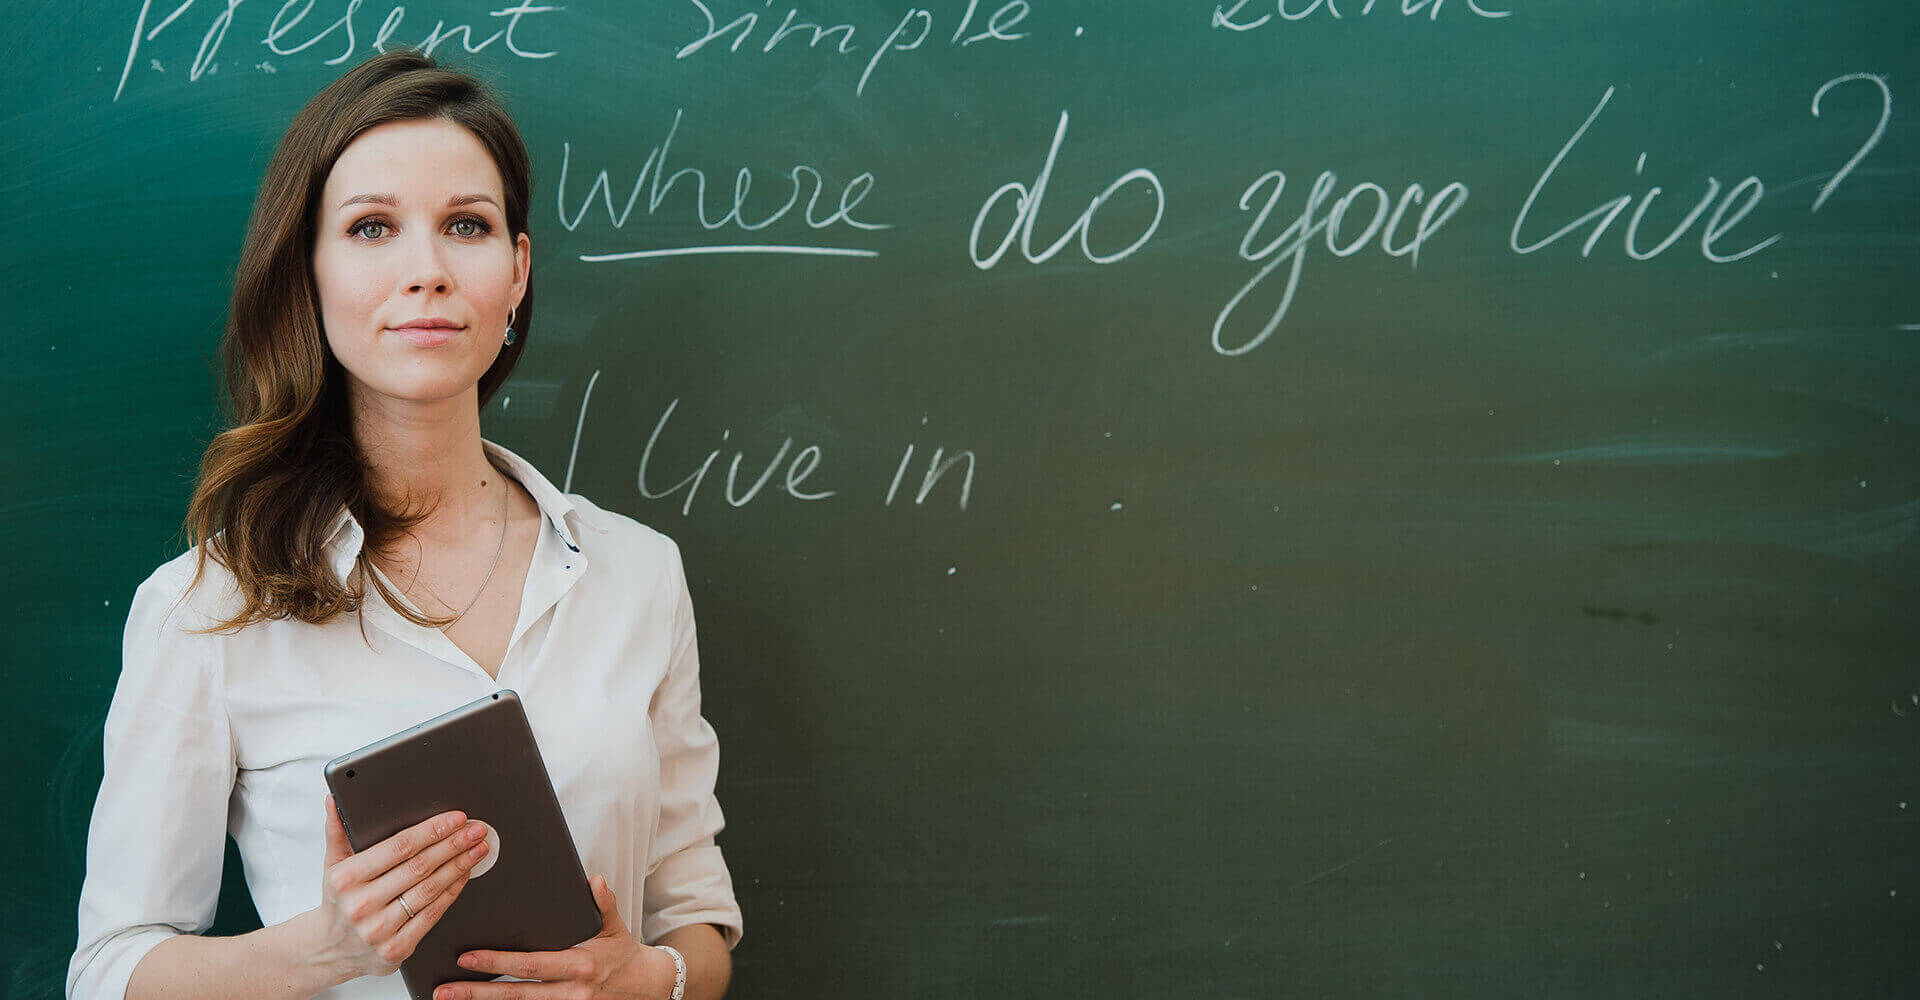 Present Simple.
where do you live?
I live in